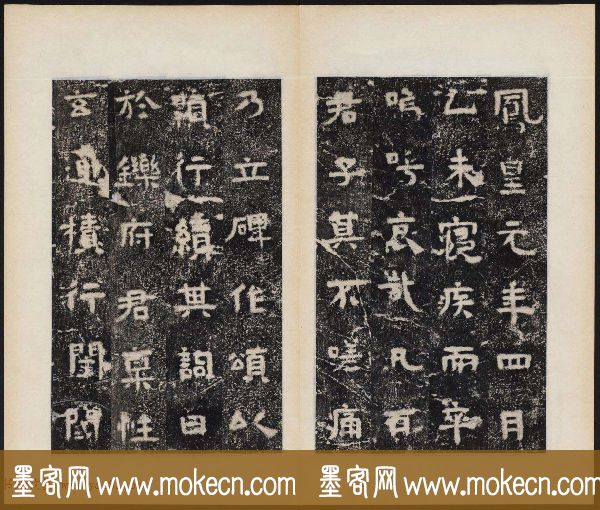 鳳皇元年四月
乙未寢疾而卒
嗚呼哀哉凡百
君子莫不嗟痛
乃立碑作頌以
顯行績其詞曰
於鑠府君稟性
玄通積行閨閫
墨客网 www.mokecn.com
墨客网 www.mokecn.com